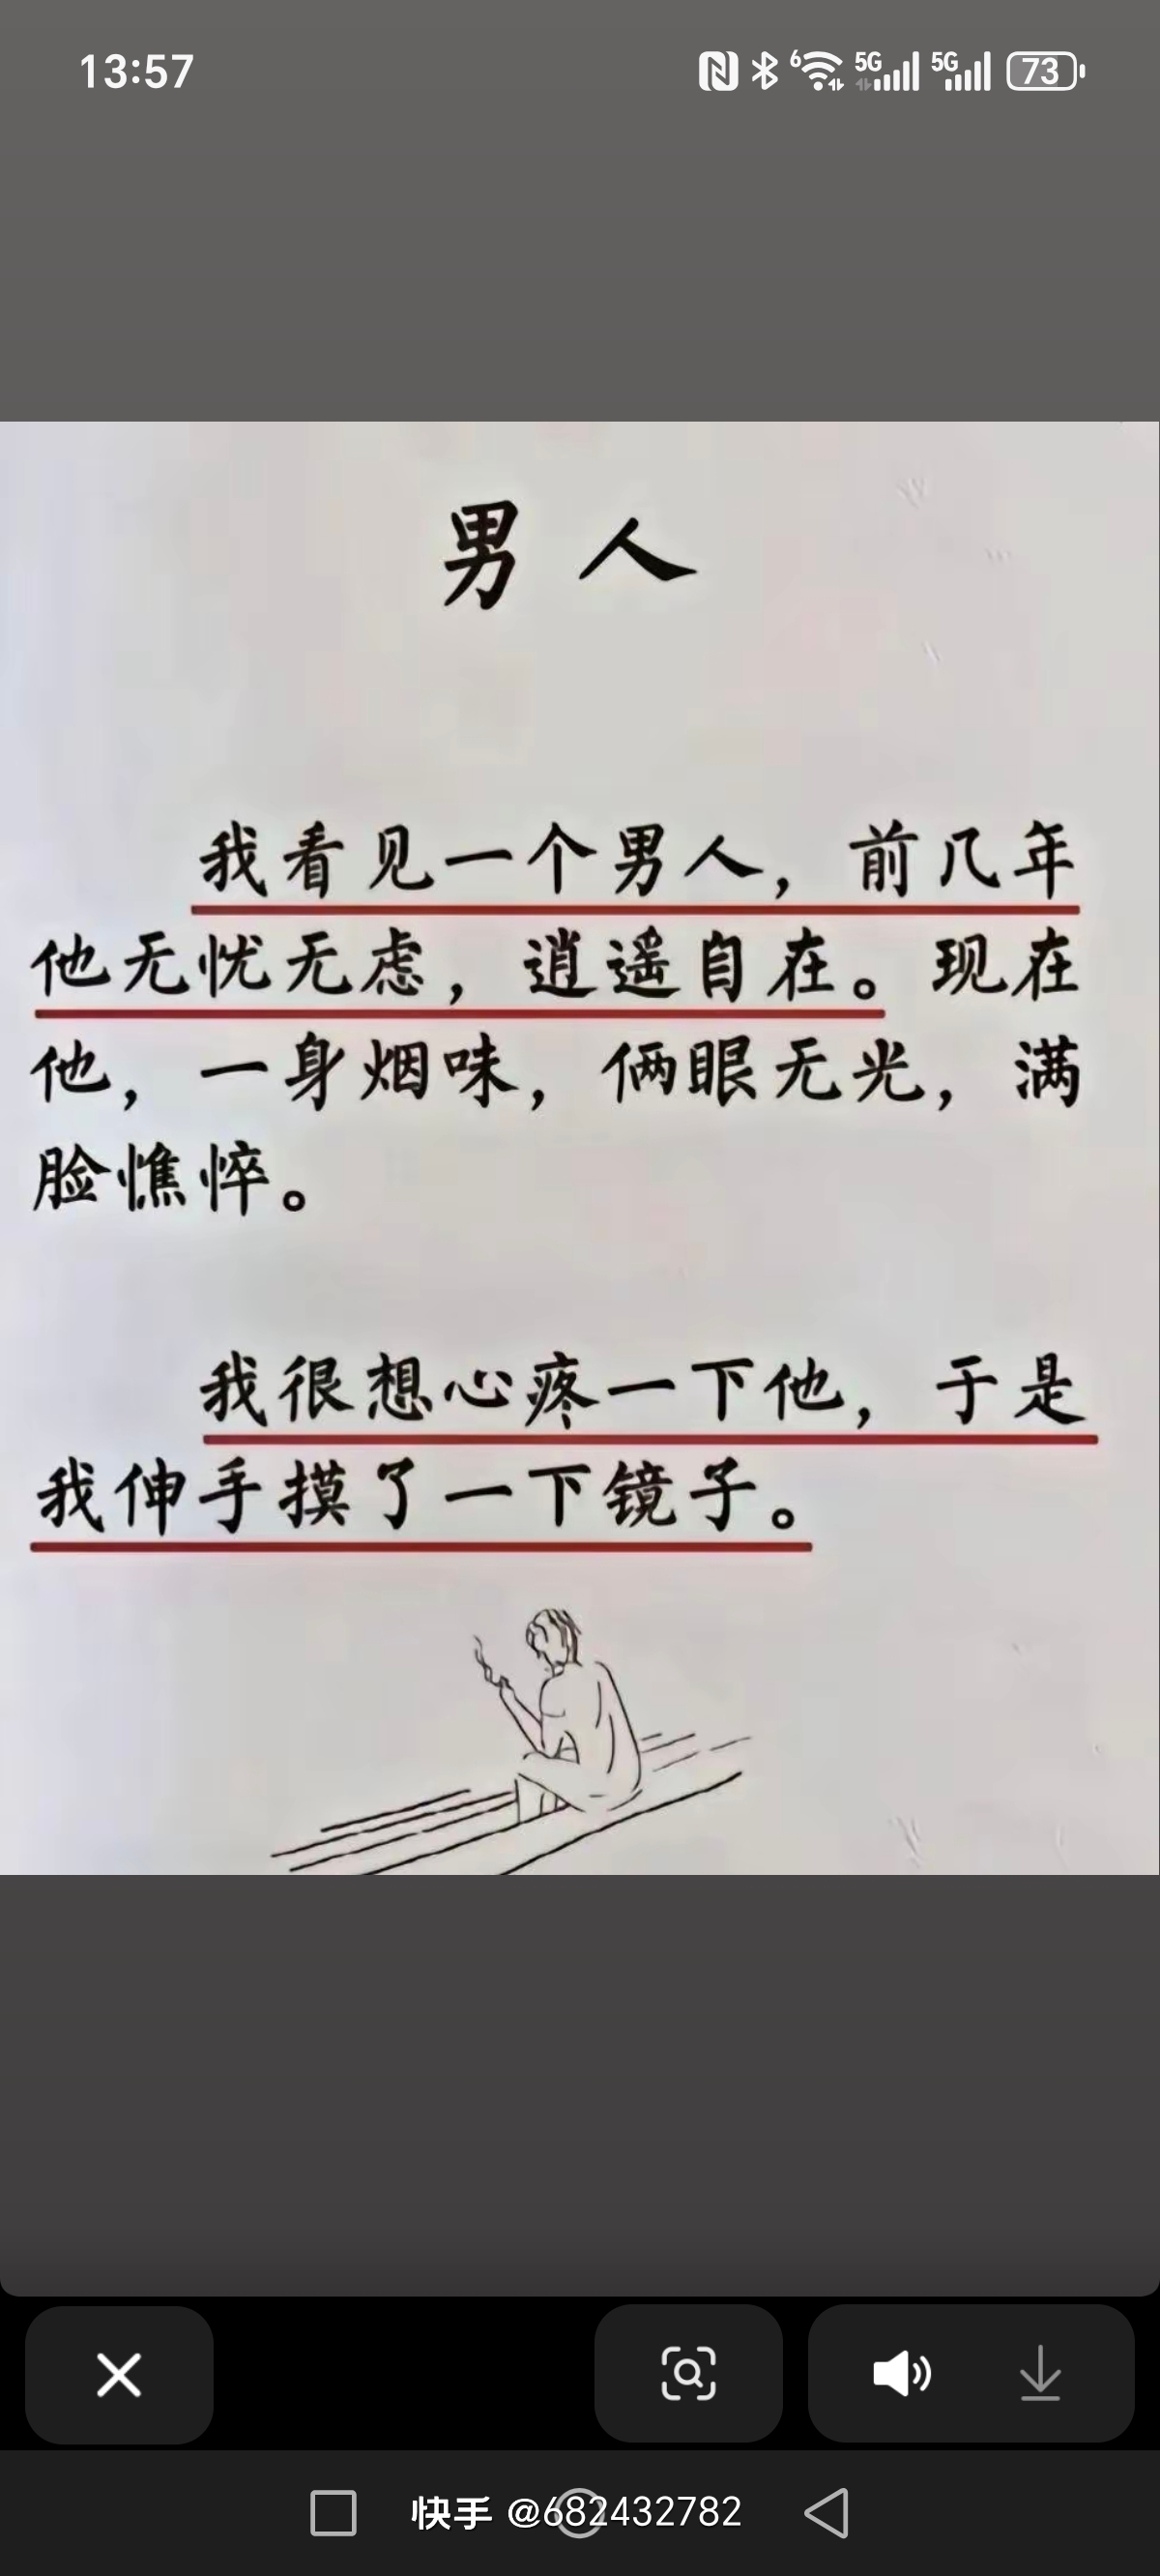 13:57
6 5G 5G 73
男人
我看见一个男人，前几年
他无忧无虑，逍遥自在。现在
他，一身烟味，俩眼无光，满
脸憔悴。
我很想心疼一下他，于是
我伸手摸了一下镜子。
快手 @682432782